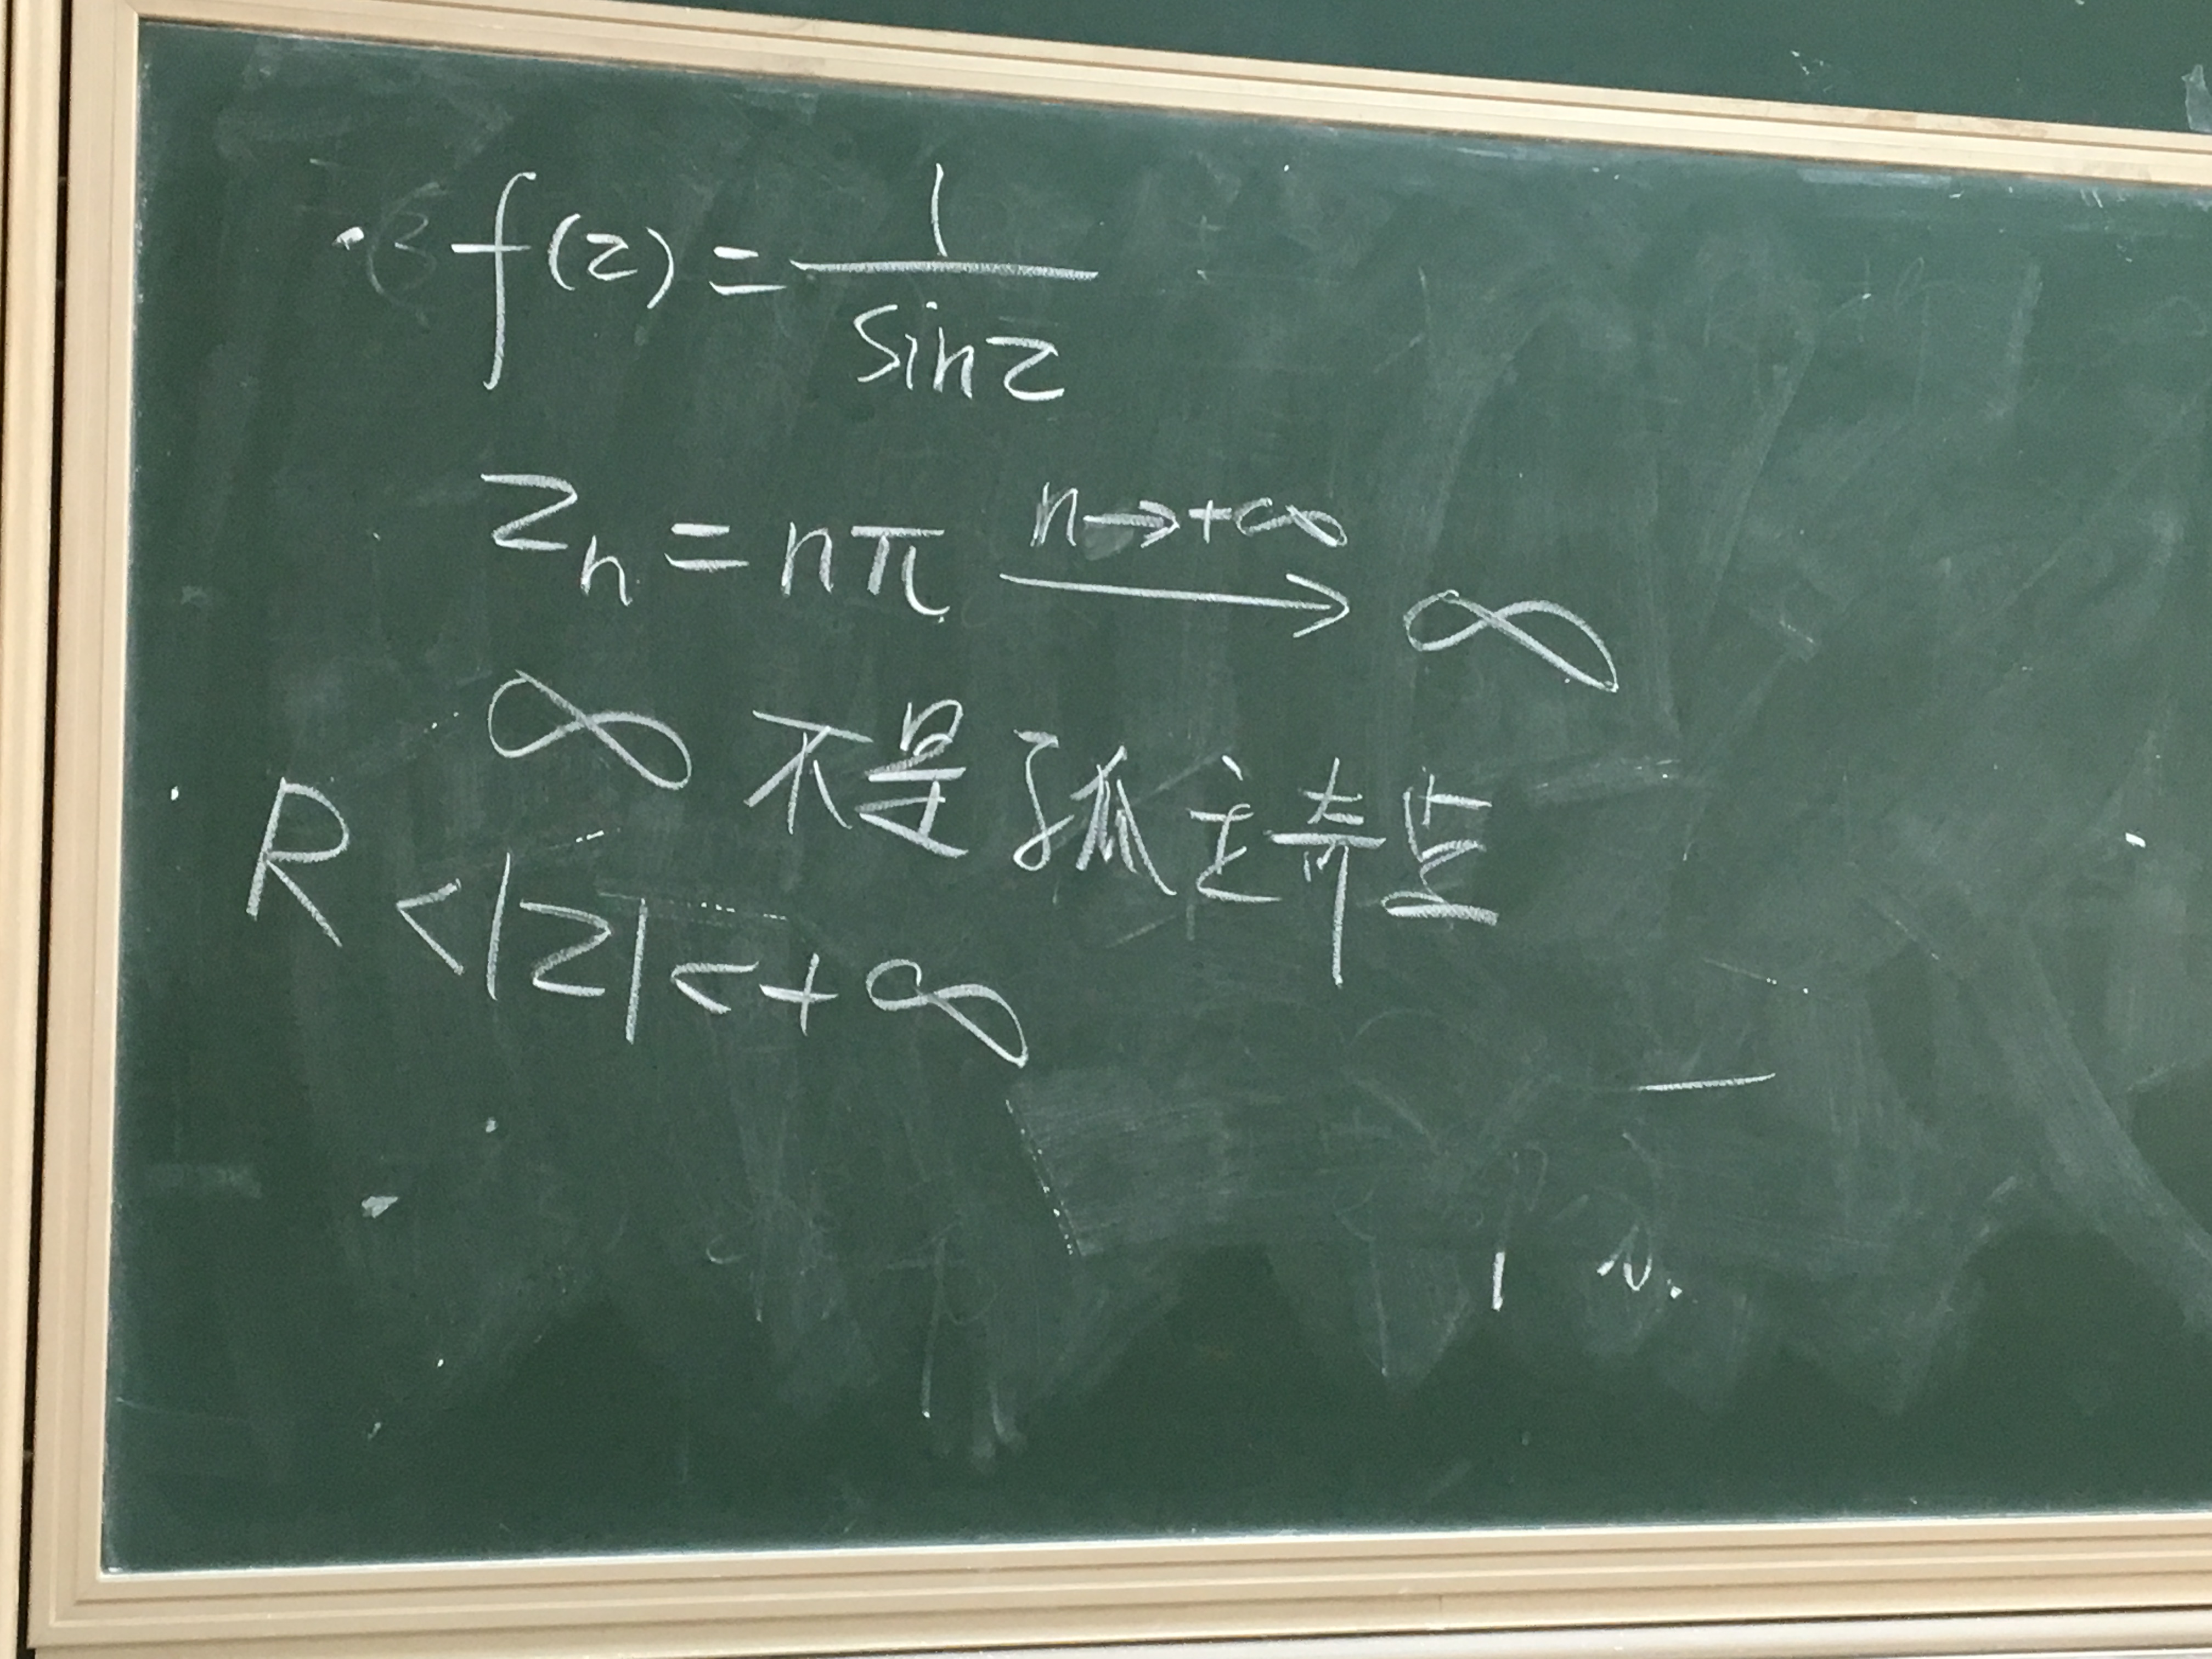 f(z) = 1/sinz
z_n = nπ \xrightarrow{n→+∞} ∞
∞ 不是孤立奇点
R < |z| < +∞